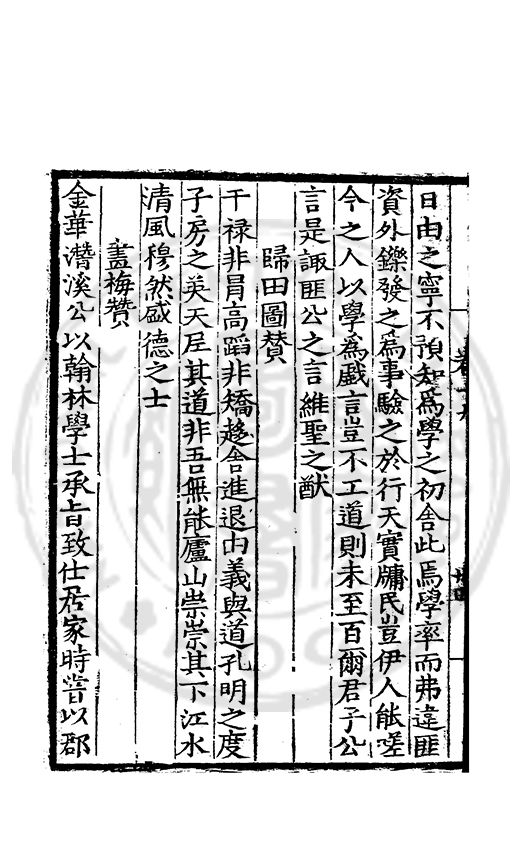 日由之寧不預知為學之初舍此焉學率而弗違匪
資外鑠發之為事驗之於行天實牖民豈伊人能嗟
今之人以學為戲言豈不工道則未至百爾君子公
言是諏匪公之言維聖之猷
歸田圖贊
干禄非冐高蹈非矯趍舍進退由義與道孔明之度
子房之羙天厇其道非吾無能廬山崇崇其下江水
清風穆然盛德之士
畵梅贊
金華潛溪公以翰林學士承旨致仕居家時甞以郡